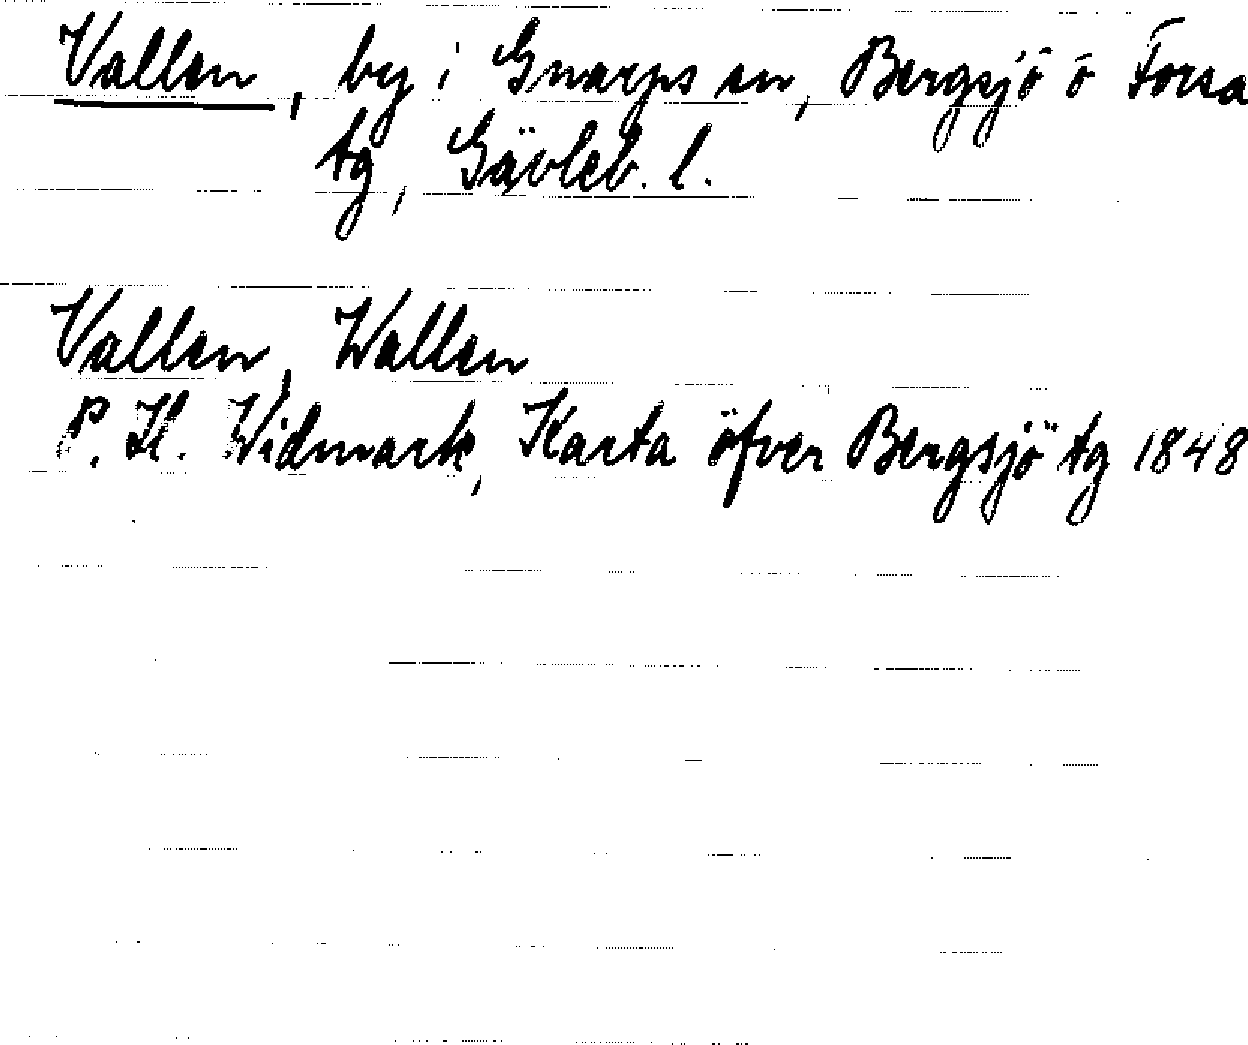 Vallen, by i Gnarps sn, Bergsjö o Forsa
tg, Gävleb. l.
Vallen, Wallen
P. H. Widmark, Karta öfver Bergsjö tg 1848